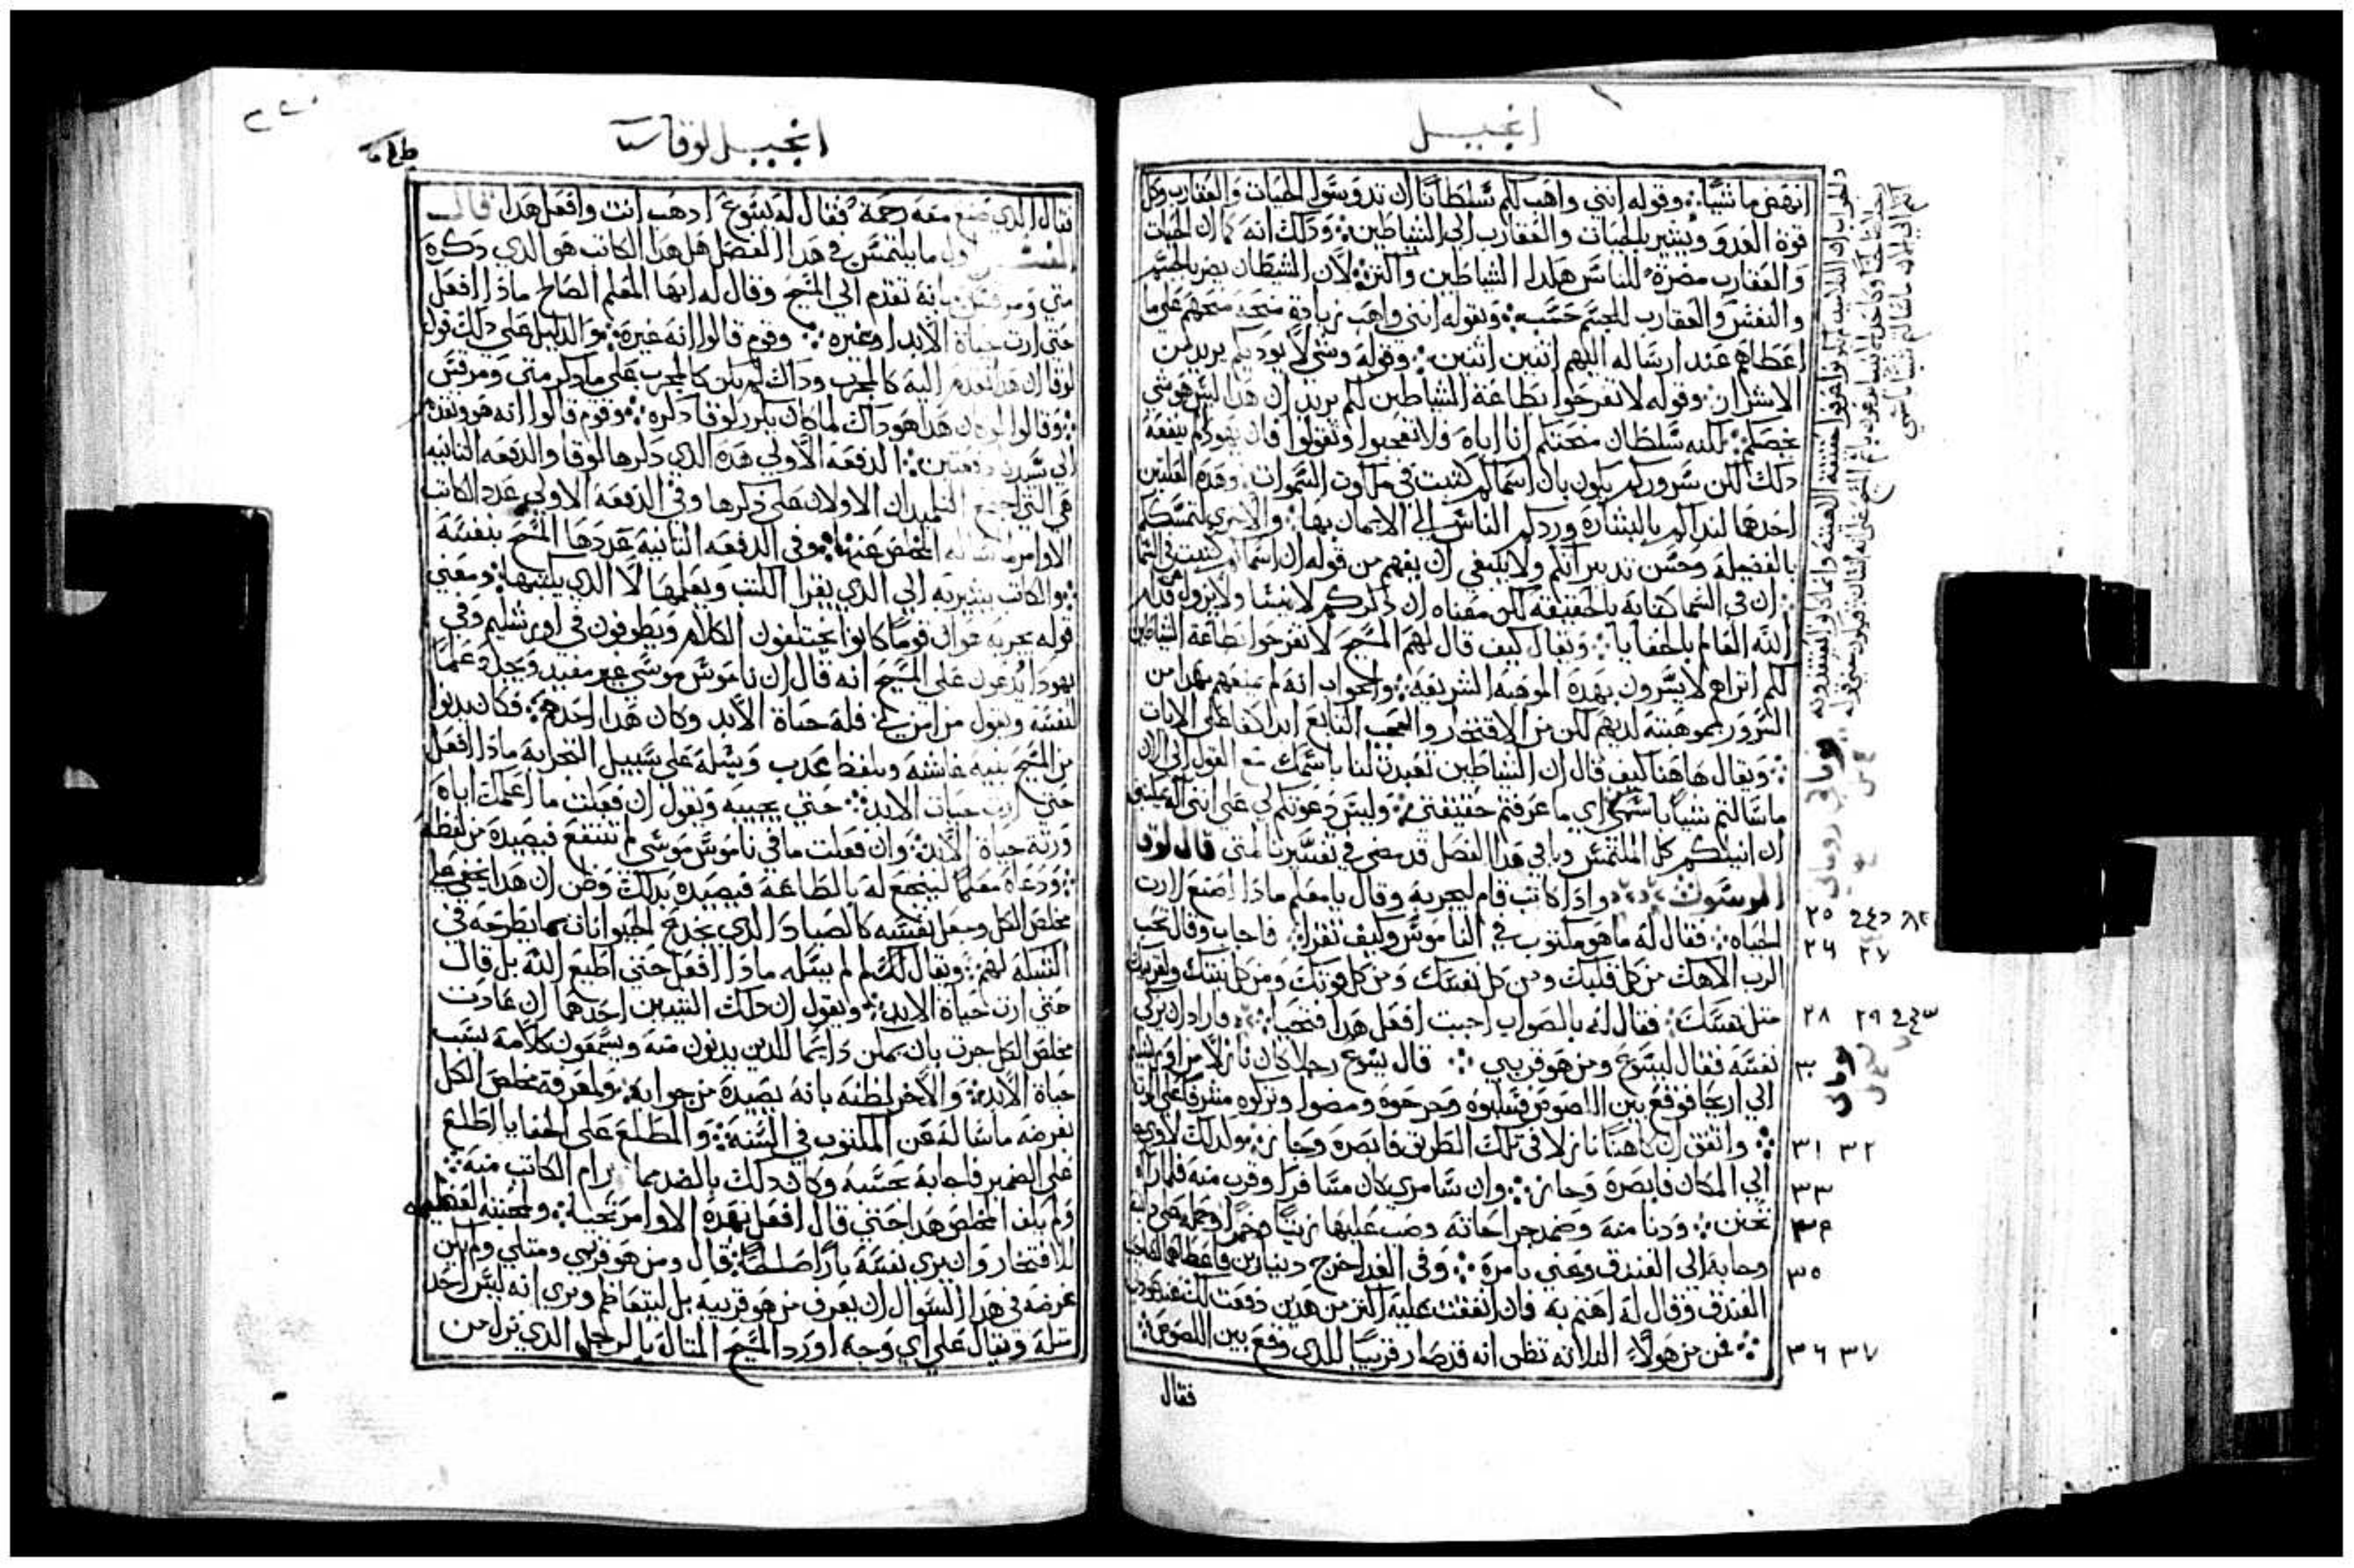 انجيل
انهض ماشيًا وقوله انني واهب لكم سلطانًا ان تدوسوا الحيات والعقارب وكل
قوة العدو ويشير بالحيات والعقارب الي الشياطين وذلك انه كما ان الحيات
والعقارب مضرة للناس هكدا الشياطين واكثر لان الشيطان يضر بالجسم
والنفس والعقارب للجسم حسب وبقوله انني واهب زيادة منحة منحهم علي ما
اعطاهم عند ارساله اليهم اثنين اثنين وقوله وشي لا يوديكم يريد من
الاشرار وقوله لا تفرحوا بطاعة الشياطين لكم يريد ان هدا ليس هو شي
يخصكم لكنه سلطان منحتكم انا اياه فلا تعجبوا وتقولوا فان يقودكم بنفعة
دلك لكن سروركم يكون بان اسماكم كتبت في ملكوت السموات وهده العلتين
احدها لنداكم بالبشارة وردكم الناس الي الايمان بها والاخري لتمسككم
بالفضيلة وحسن تدبيراتكم ولا ينبغي ان يفهم من قوله ان اسماكم كتبت في السما
ان في السما كتابة بالحقيقة لكن معناه ان دكركم لا ينسا ولا يزول قدام
الله العالم بالخفايا ويقال كيف قال لهم المسيح لا تفرحوا بطاعة الشياطين
لكم اتراهم لا يسرون بهده الموهبة الشريفة والجواب انه لم يمنعهم بهدا من
السرور بموهبته لديهم لكن من الافتخار والعجب التابع ابدا كفاعلي الايات
ويقال هاهنا كيف قال ان الشياطين تعبدت لنا باسمك مع القول الي الان
ما سالتم شيا باسمي اي ما عرفتم حقيقتي وليس دعوتكم لي علي انني اله يمكنني
ان انيلكم كل الملتمس وباقي هدا الفصل قد مضي في تفسيرنا لمتي قال لوقا
الرسول وادا كاتب قام ليجربه وقال يا معلم مادا اصنع لارت
الحياه فقال له ما هو مكتوب في الناموس وكيف تقرا فاجاب وقال تحب
الرب الاهك من كل قلبك ومن كل نفسك ومن كل قوتك ومن كل نيتك ولقريبك
مثل نفسك فقال له بالصواب اجبت افعل هدا فتحيا فاراد ان يزكي
نفسه فقال ليسوع ومن هو قريبي قال يسوع رجلا كان نازلا من اورشليم
الي اريحا فوقع بين اللصوص فسلبوه وجرحوه ومضوا وتركوه مشرفًا علي الموت
واتفق ان كاهنًا نازلا في تلك الطريق فابصره وجاز وكدلك لاوي
الي المكان فابصره وجاز وان سامري كان مسافرا وقرب منه فلما راه
تحنن ودنا منه وضمد جراحاته وصب عليها زيتًا وخمرًا وحمله علي دابته
وجا به الي الفندق وعني بامره وفي الغد اخرج دينارين فاعطاهما لصاحب
الفندق وقال له اهتم به فان انفقت عليه اكثر من هدين دفعت لك عند عودتي
فمن من هولاء التلاتة تظن انه قد صار قريبًا للدي وقع بين اللصوص
فقال
٢٥
٢٦ ٢٧
٢٨ ٢٩
٣٠
٣١ ٣٢
٣٣
٣٤
٣٥
٣٦ ٣٧
انجيل لوقا
فقال الدي صنع معه رحمة فقال له يسوع ادهب انت وافعل هدا قال
المفسر اول ما يلتمس في هدا الفصل هل هدا الكاتب هو الدي دكره
متي ومرقس بانه تقدم الي المسيح وقال له ايها المعلم الصالح مادا افعل
حتي ارت حياة الابد او غيره وقوم قالوا انه غيره والدليل علي دلك قول
لوقا ان هدا تقدم اليه كالمجرب وداك لم يكن كالمجرب علي ما دكر متي ومرقس
وقالوا لو كان هدا هو داك لما كان يكرر لوقا دكره وقوم قالوا انه هو وتقدم
الي سيدنا دفعتين الدفعة الاولي هده الدي دكرها لوقا والدفعة التانيه
هي التي اجمع التلميدان الاولان علي دكرها وفي الدفعة الاولي عدد الكاتب
الاوامر لما ساله المخلص عنها وفي الدفعة التانية عددها المسيح بنفسه
والكاتب يشير به الي الدي يقرا الكتب ويعلمها لا الدي يكتبها ومعني
قوله يجربه هو ان قومًا كانوا يختلفون الكلام ويطوفون في اورشليم وفي
يهودا يدعون علي المسيح انه قال ان ناموس موسي غير مفيد ويجعله علمًا
لنفسه ويقول من امن بي فله حياة الابد وكان هدا احدهم فكان يدنوا
من المسيح بنية غاشة وبلفظ عدب ويسله علي سبيل التجربة مادا افعل
حتي ارت حيات الابد حتي يجيبه ويقول ان فعلت ما اعلمك اياه
ورتة حياة الابد وان فعلت ما في ناموس موسي لم تنتفع فيصيده من لفظه
ودعاه معلمًا ليخضع له بالطاعة فيصيده بدلك وظن ان هدا يخفي علي
مخلص الكل وجعل نفسه كالصياد الدي يخدع الحيوانات بما يطرحه في
الشبكة لهم ويقال لك لم لم يسله مادا افعل حتي اطيع الله بل قال
حتي ارت حياة الابد ونقول ان دلك لشيين احدهما ان عادت
مخلص الكل جرت بان يمكن دايمًا للدين يدنون منه ويسمعون كلامه بسبب
حياة الابد والاخر لظنه بانه يصيده من جوابه ولمعرفة مخلص الكل
بغرضه ما ساله عن المكتوب في السنة والمطلع علي الخفايا اطلع
علي الضمير فاجابه بحسبه وكان دلك بالضد مما رام الكاتب منه
ولم يلف المخلص هدا حتي قال افعل بهده الاوامر تحيا ولمحبته لعظمة
للافتخار وان يري نفسه بارًا صالحًا قال ومن هو قريبي ومتلي ولم يكن
غرضه في هدا السوال ان يعرف من هو قريبه بل ليتعاظم ويري انه ليس احد
متله ويقال علي اي وجه اورد المسيح المتال بالرجل الدي نزل من